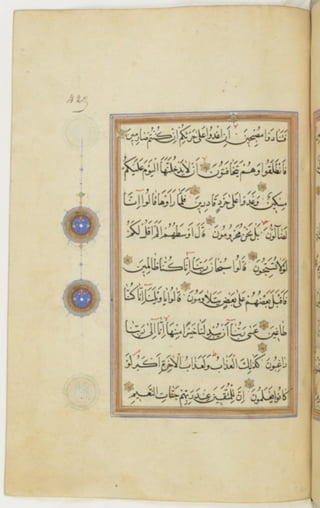 425
فتنادوا مصبحين ان اغدوا على حرثكم ان كنتم صارمين
فانطلقوا وهم يتخافتون ان لا يدخلنها اليوم عليكم
مسكين وغدوا على حرد قادرين فلما راوها قالوا انا
لضالون بل نحن محرومون قال اوسطهم الم اقل لكم
لولا تسبحون قالوا سبحان ربنا انا كنا ظالمين
فاقبل بعضهم على بعض يتلاومون قالوا يا ويلنا انا كنا
طاغين عسى ربنا ان يبدلنا خيرا منها انا الى ربنا
راغبون كذلك العذاب ولعذاب الاخرة اكبر لو
كانوا يعلمون ان للمتقين عند ربهم جنات النعيم